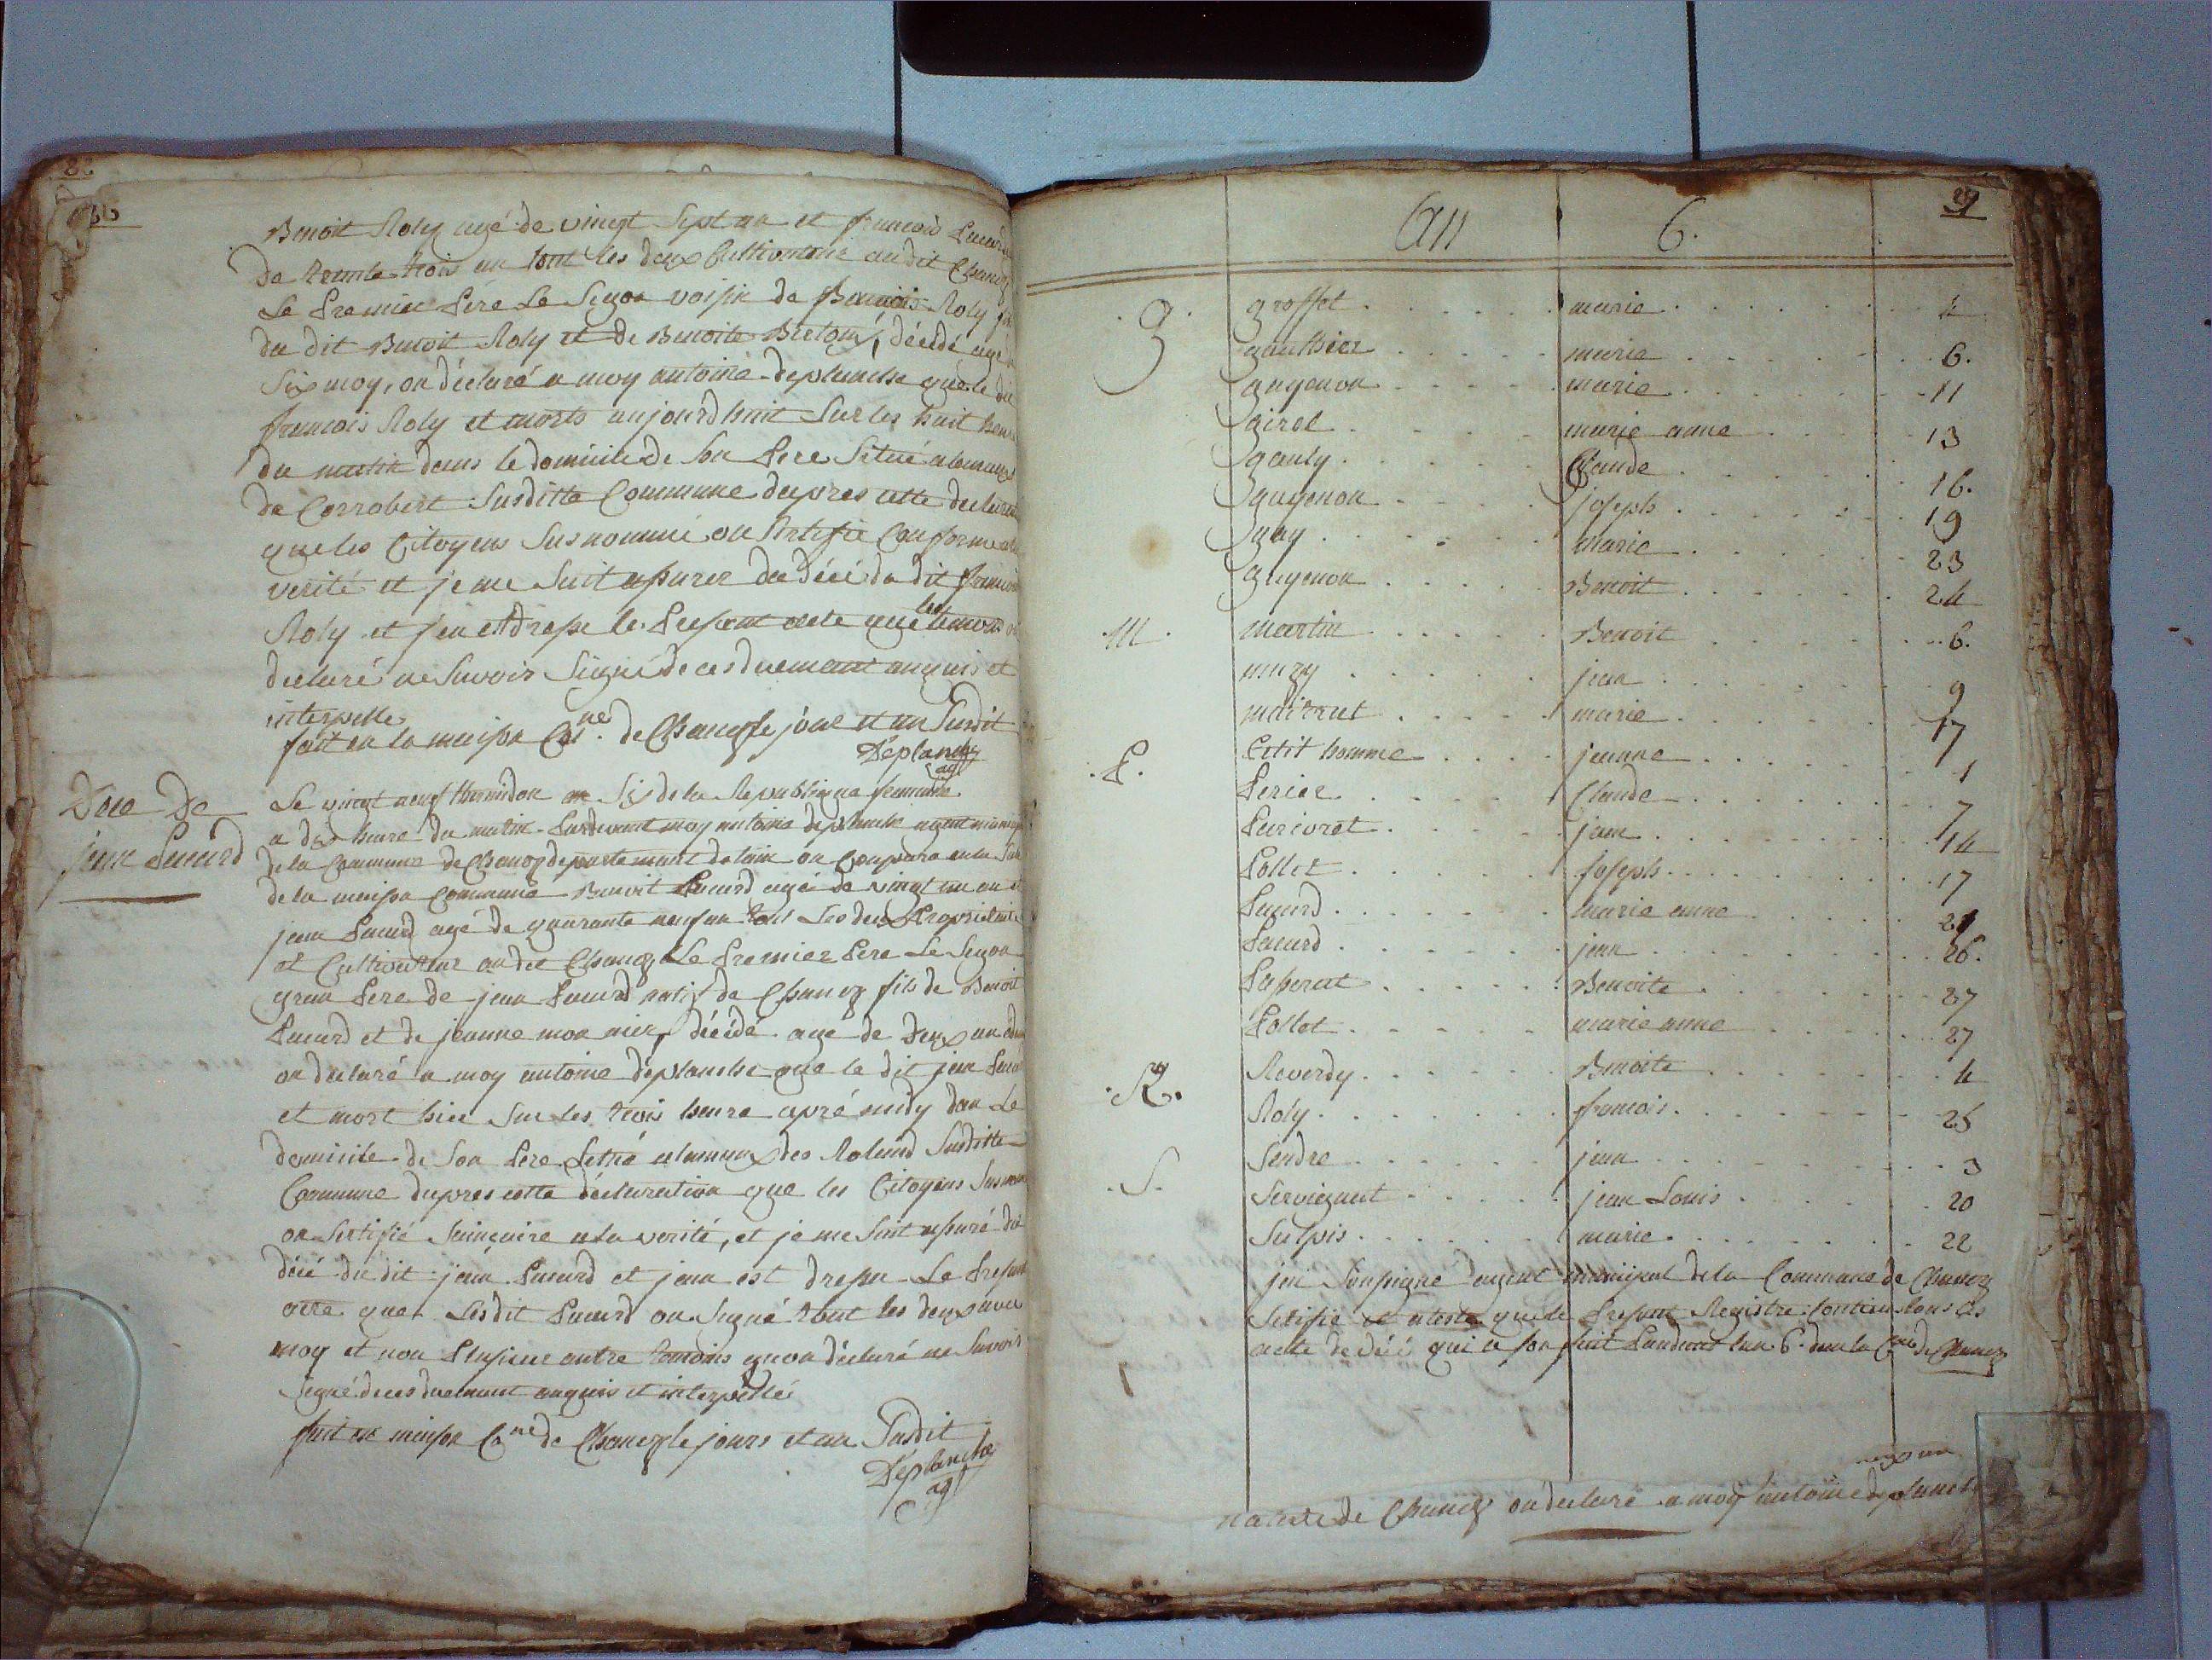 Benoit Roly agé de vingt Sept an et francois Pucurd
de trente trois an tout les deux Cultivateur audit Chanoz
Le Premier Pere Le Segon voisin de francois Roly fils
du dit Benoit Roly et de Benoite Breton, décédé agé
Six moy, on déclaré a moy antoine deplanche que le dit
francois Roly et morts aujourdhuit Sur les huit heure
du matin dans le domicile de Son Pere Situé
de Corrobert Susditte Commune daepres cette declaration
que les Citoyens Susnommé on Sertifié Conforme a la
verité et je me Suit assurer du déçé du dit francois
Roly et jen est dressé le Present acte que les temoins on
declaré ne Savoir Signé de ces duemant anquis et
interpelle
fait en la maison Cne de Chanoz le jour et an Susdit
Déplanche
ag
Dece De
jean Pucurd
Le vingt neuf thermidor an Six de la Republique francaise
a dix heure du matin Pardevant moy antoine deplanche agent municipal
de la Commune de Chanoz departement de lain on Conparu en la Salle
de la maison Commune Benoit Pucurd agé de vingt un an et
jean Pucurd agé de quarante neuf an tout Les deux Proprietaire
et Cultivateur audit Chanoz Le Premier Pere Le Segon
gran Pere de jean Pucurd natif de Chanoz fils de Benoit
Pucurd et de jeanne mon nier, décédé age de Deux an
on declaré a moy antoine déplanche que le dit jean Pucurd
et mort hier Sur les trois heure apré midy dan Le
domicile de Son Pere Situé des Roland Susditte
Commune daepres cette déclaration que les Citoyens Susnommé
on Sertifié Sinçaire a la verité, et je me Suit assuré du
déçé du dit jean Pucurd et jean est dresser Le Present
acte que Lesdit Pucurd on Signé tout les deux avec
moy et non Plusieur autre temoins quon déclaré ne Savoir
Signé de ces duemant anquis et interpéllé
fait en maison Cne de Chanoz le jours et an Susdit
Déplanche
ag
an 6.
g. groffet marie 4
gauthier marie 6.
guyenon marie 11
girel marie anne 13
gauly Claude 16.
guyenon joseph 19
guy marie 23
guyenon Benoit 24
M. martin Benoit 6.
muzy jean 9
maitrat marie 17
P. Petit homme jeanne 1
Perier Claude 7
Parivret jean 14
Pollet joseph 17
Pucurd marie anne 21
Pucurd jean 26.
Paperat Benoite 27
Pollet marie anne 27
R. Reverdy Benoite 4
Roly francois 25
S. Sendre jean 3
Servignat jean Louis 20
Sulpis marie 22
jai Soussigne agent municipal de la Commune de Chanoz
Sertifie et ateste que le Present Registre Contien tous les
acte de déçé qui ce son fait Pandant lan 6. dans la Cne de Chanoz
native de Chanoz on declaré a moy antoine deplanche